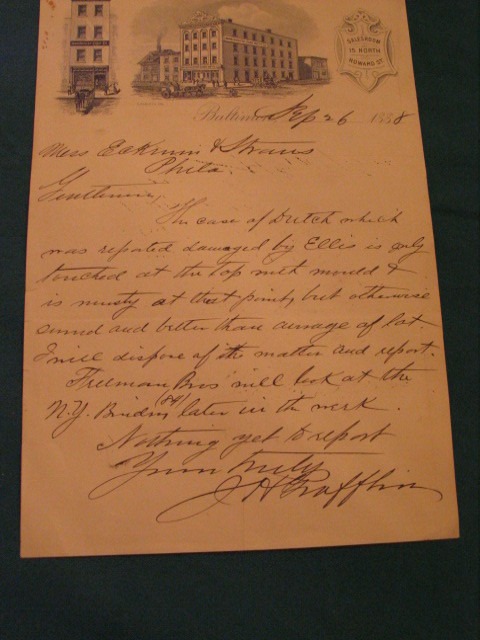 SALESROOM
15 NORTH
HOWARD ST.
Baltimore, Sep 26 1888
Mess & Straus
Phila.
Gentlemen,
The case of Dutch which
was reported damaged by Ellis is only
touched at the top with mould &
is musty at that point, but otherwise
sound and better than average of lot.
I will dispose of the matter and report.
Freeman Bros will look at the
N.Y. Binders (84) later in the week.
Nothing yet to report
Yours truly
J H